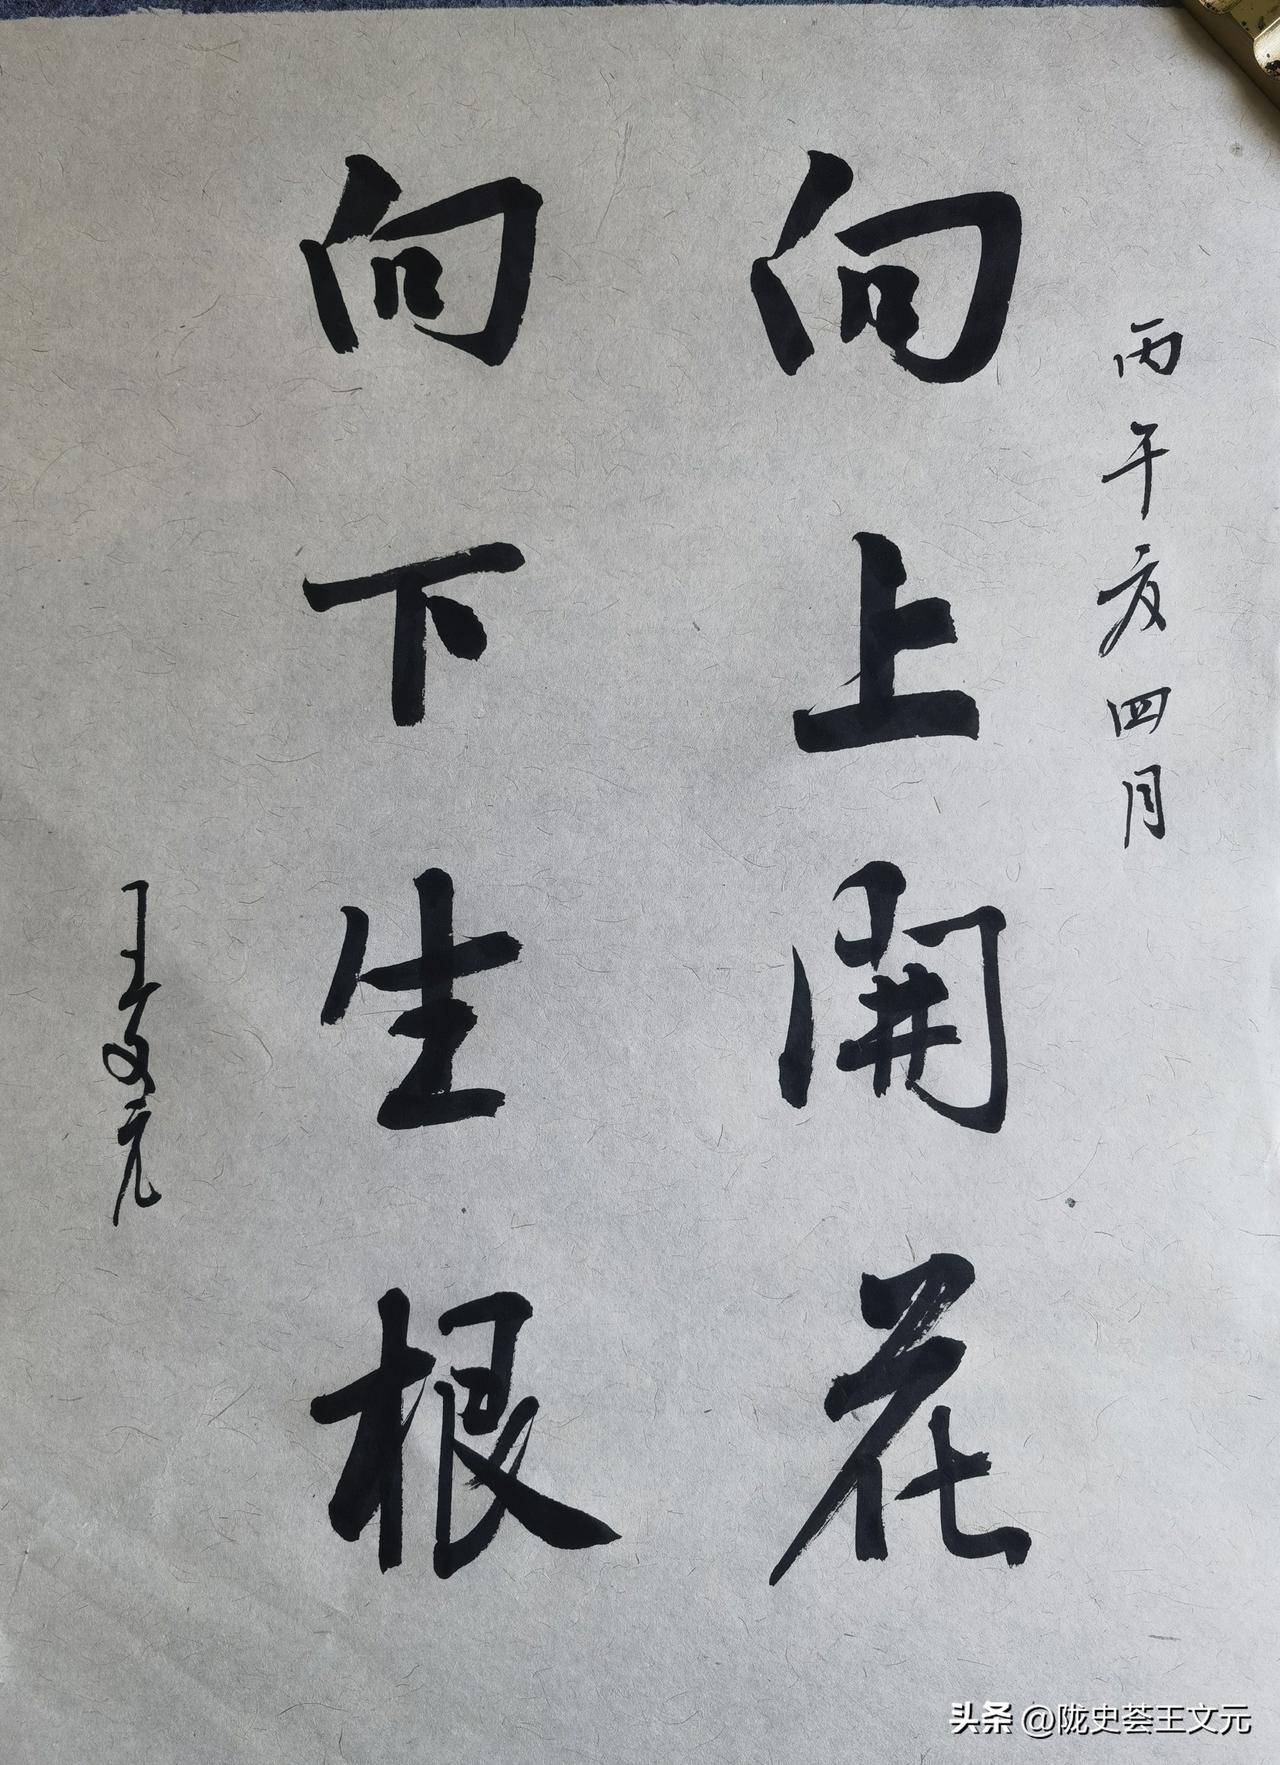 丙午夏四月
向上開花
向下生根
王文元
头条 @陇史荟王文元